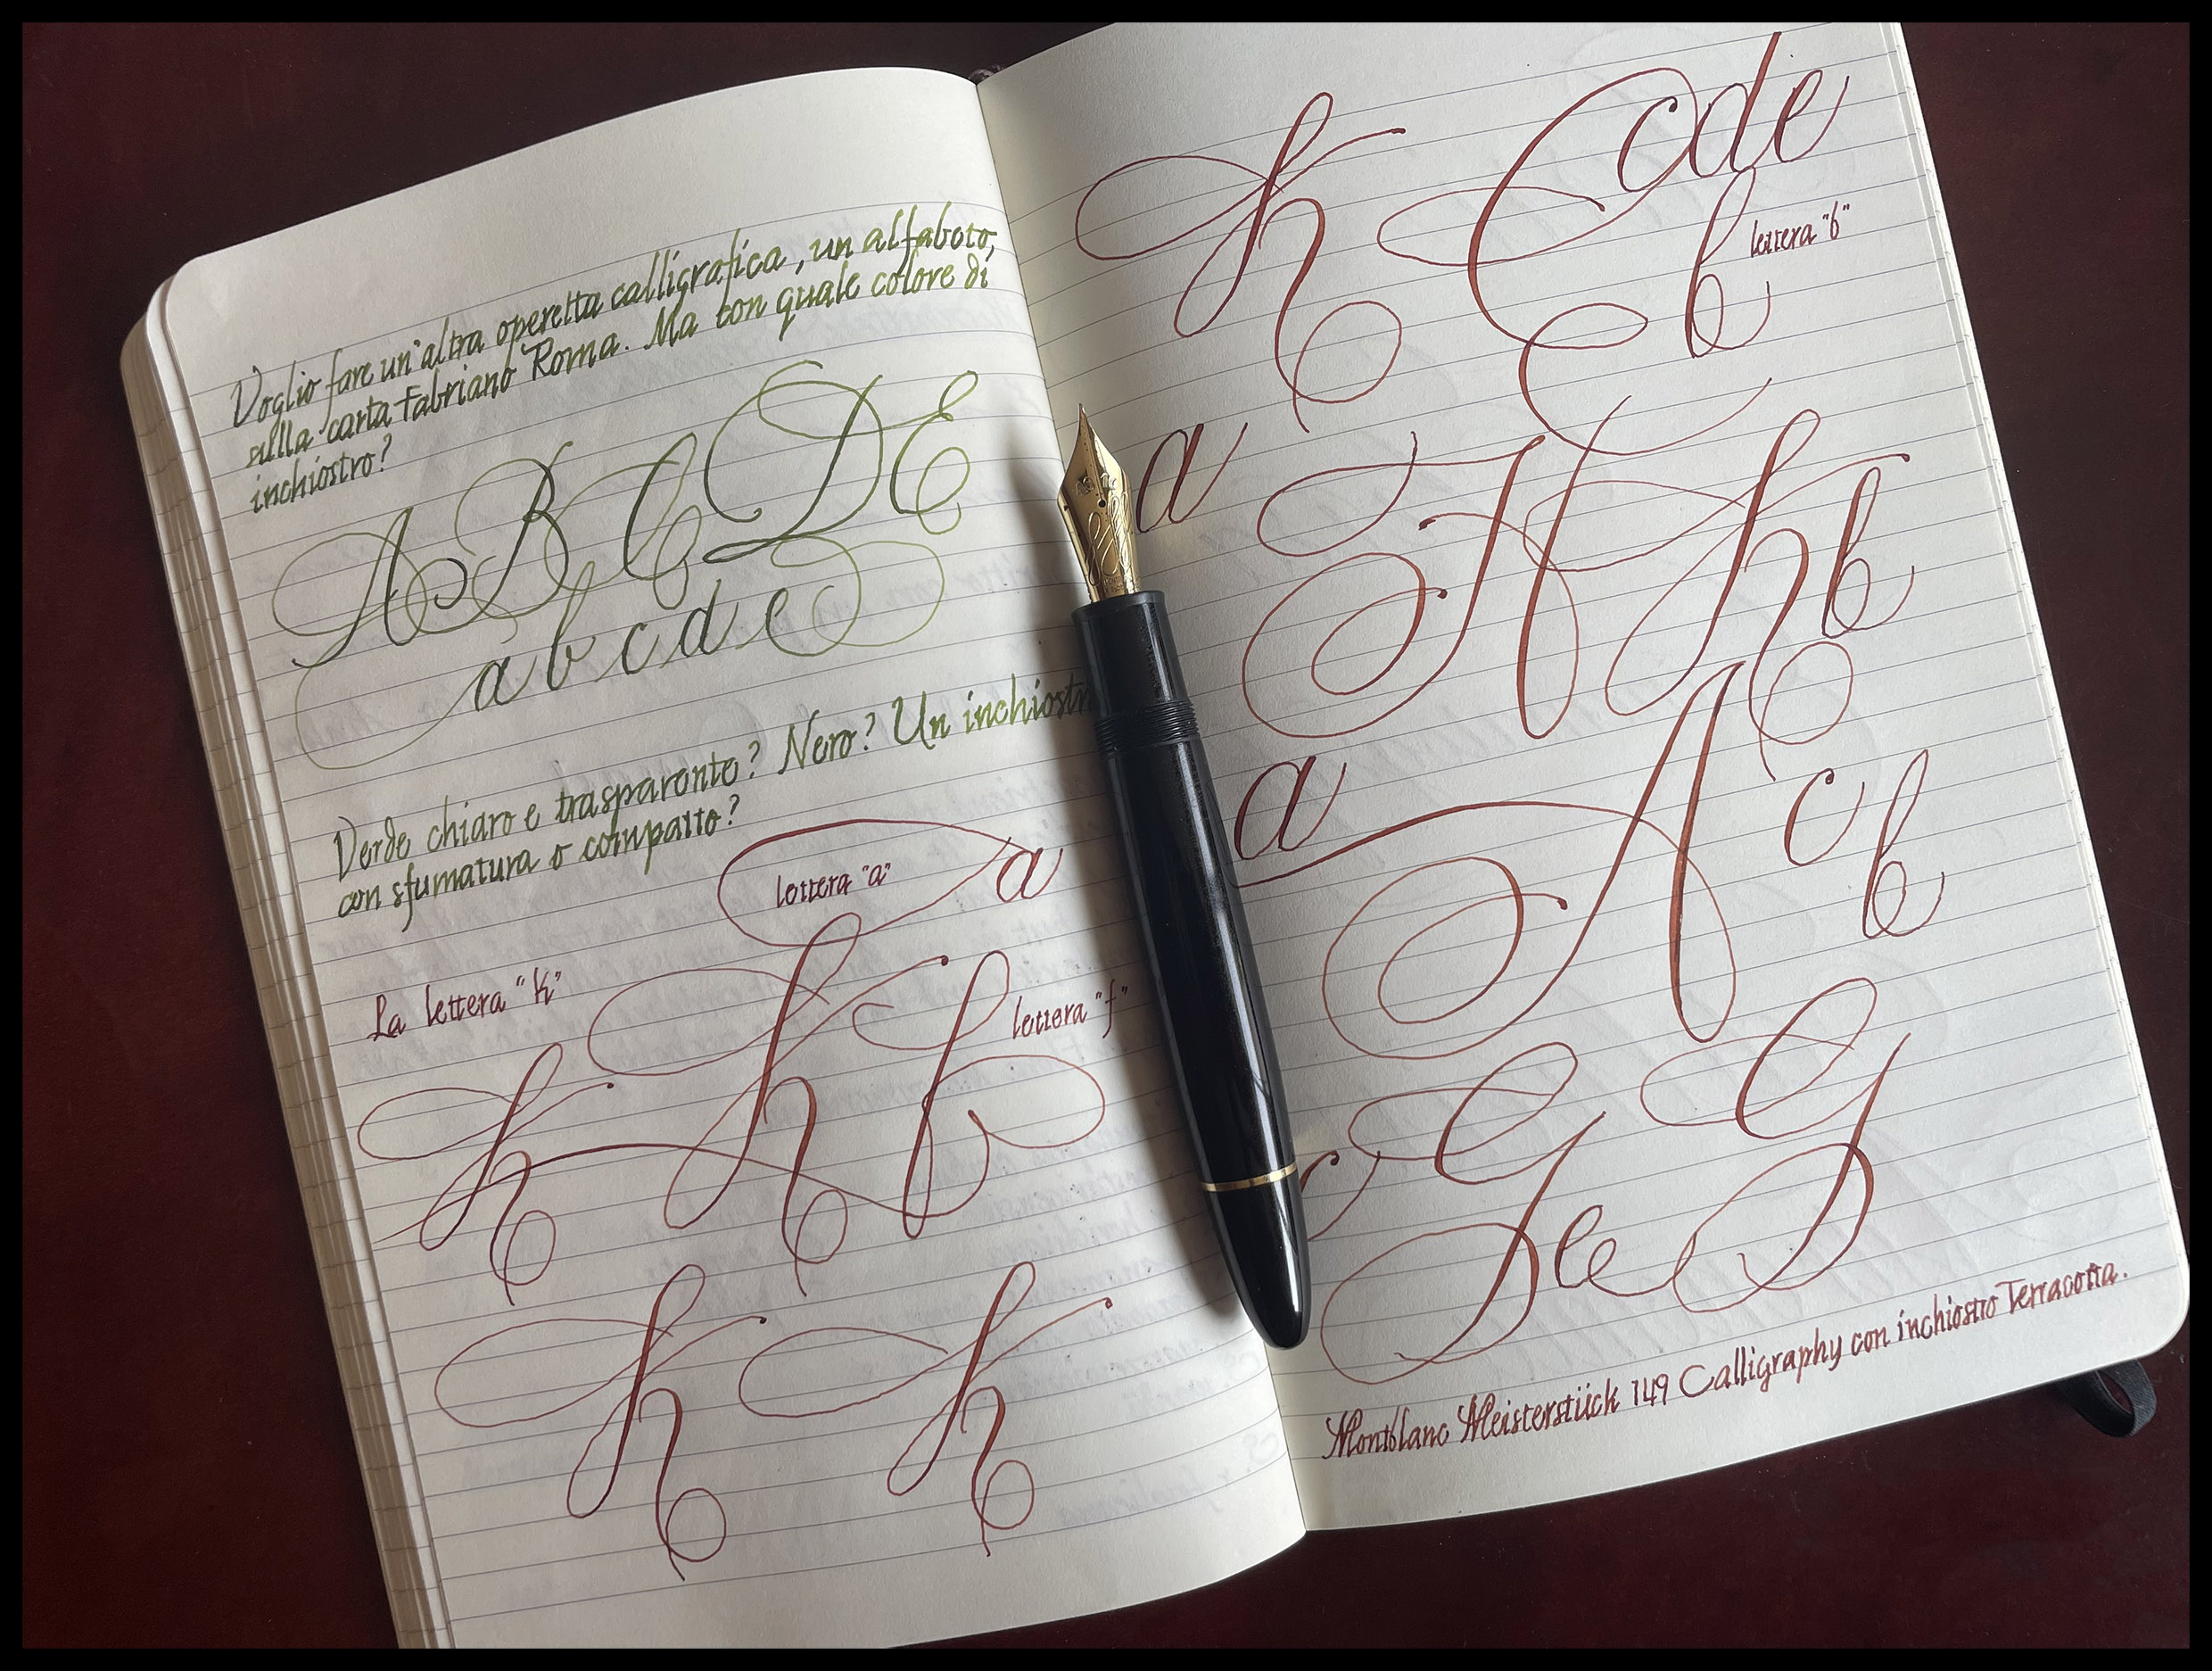 Voglio fare un'altra operetta calligrafica, un alfabeto,
sulla carta Fabriano Roma. Ma con quale colore di
inchiostro?
A B C D E
a b c d e
Verde chiaro e trasparente? Nero? Un inchiostr
con sfumatura o compatto?
lettera "a" a
La lettera "K"
K K f lettera "f"
K K
K C c d e
b lettera "b"
a A K b
a A c b
c G e G
Montblanc Meisterstück 149 Calligraphy con inchiostro Terracotta.